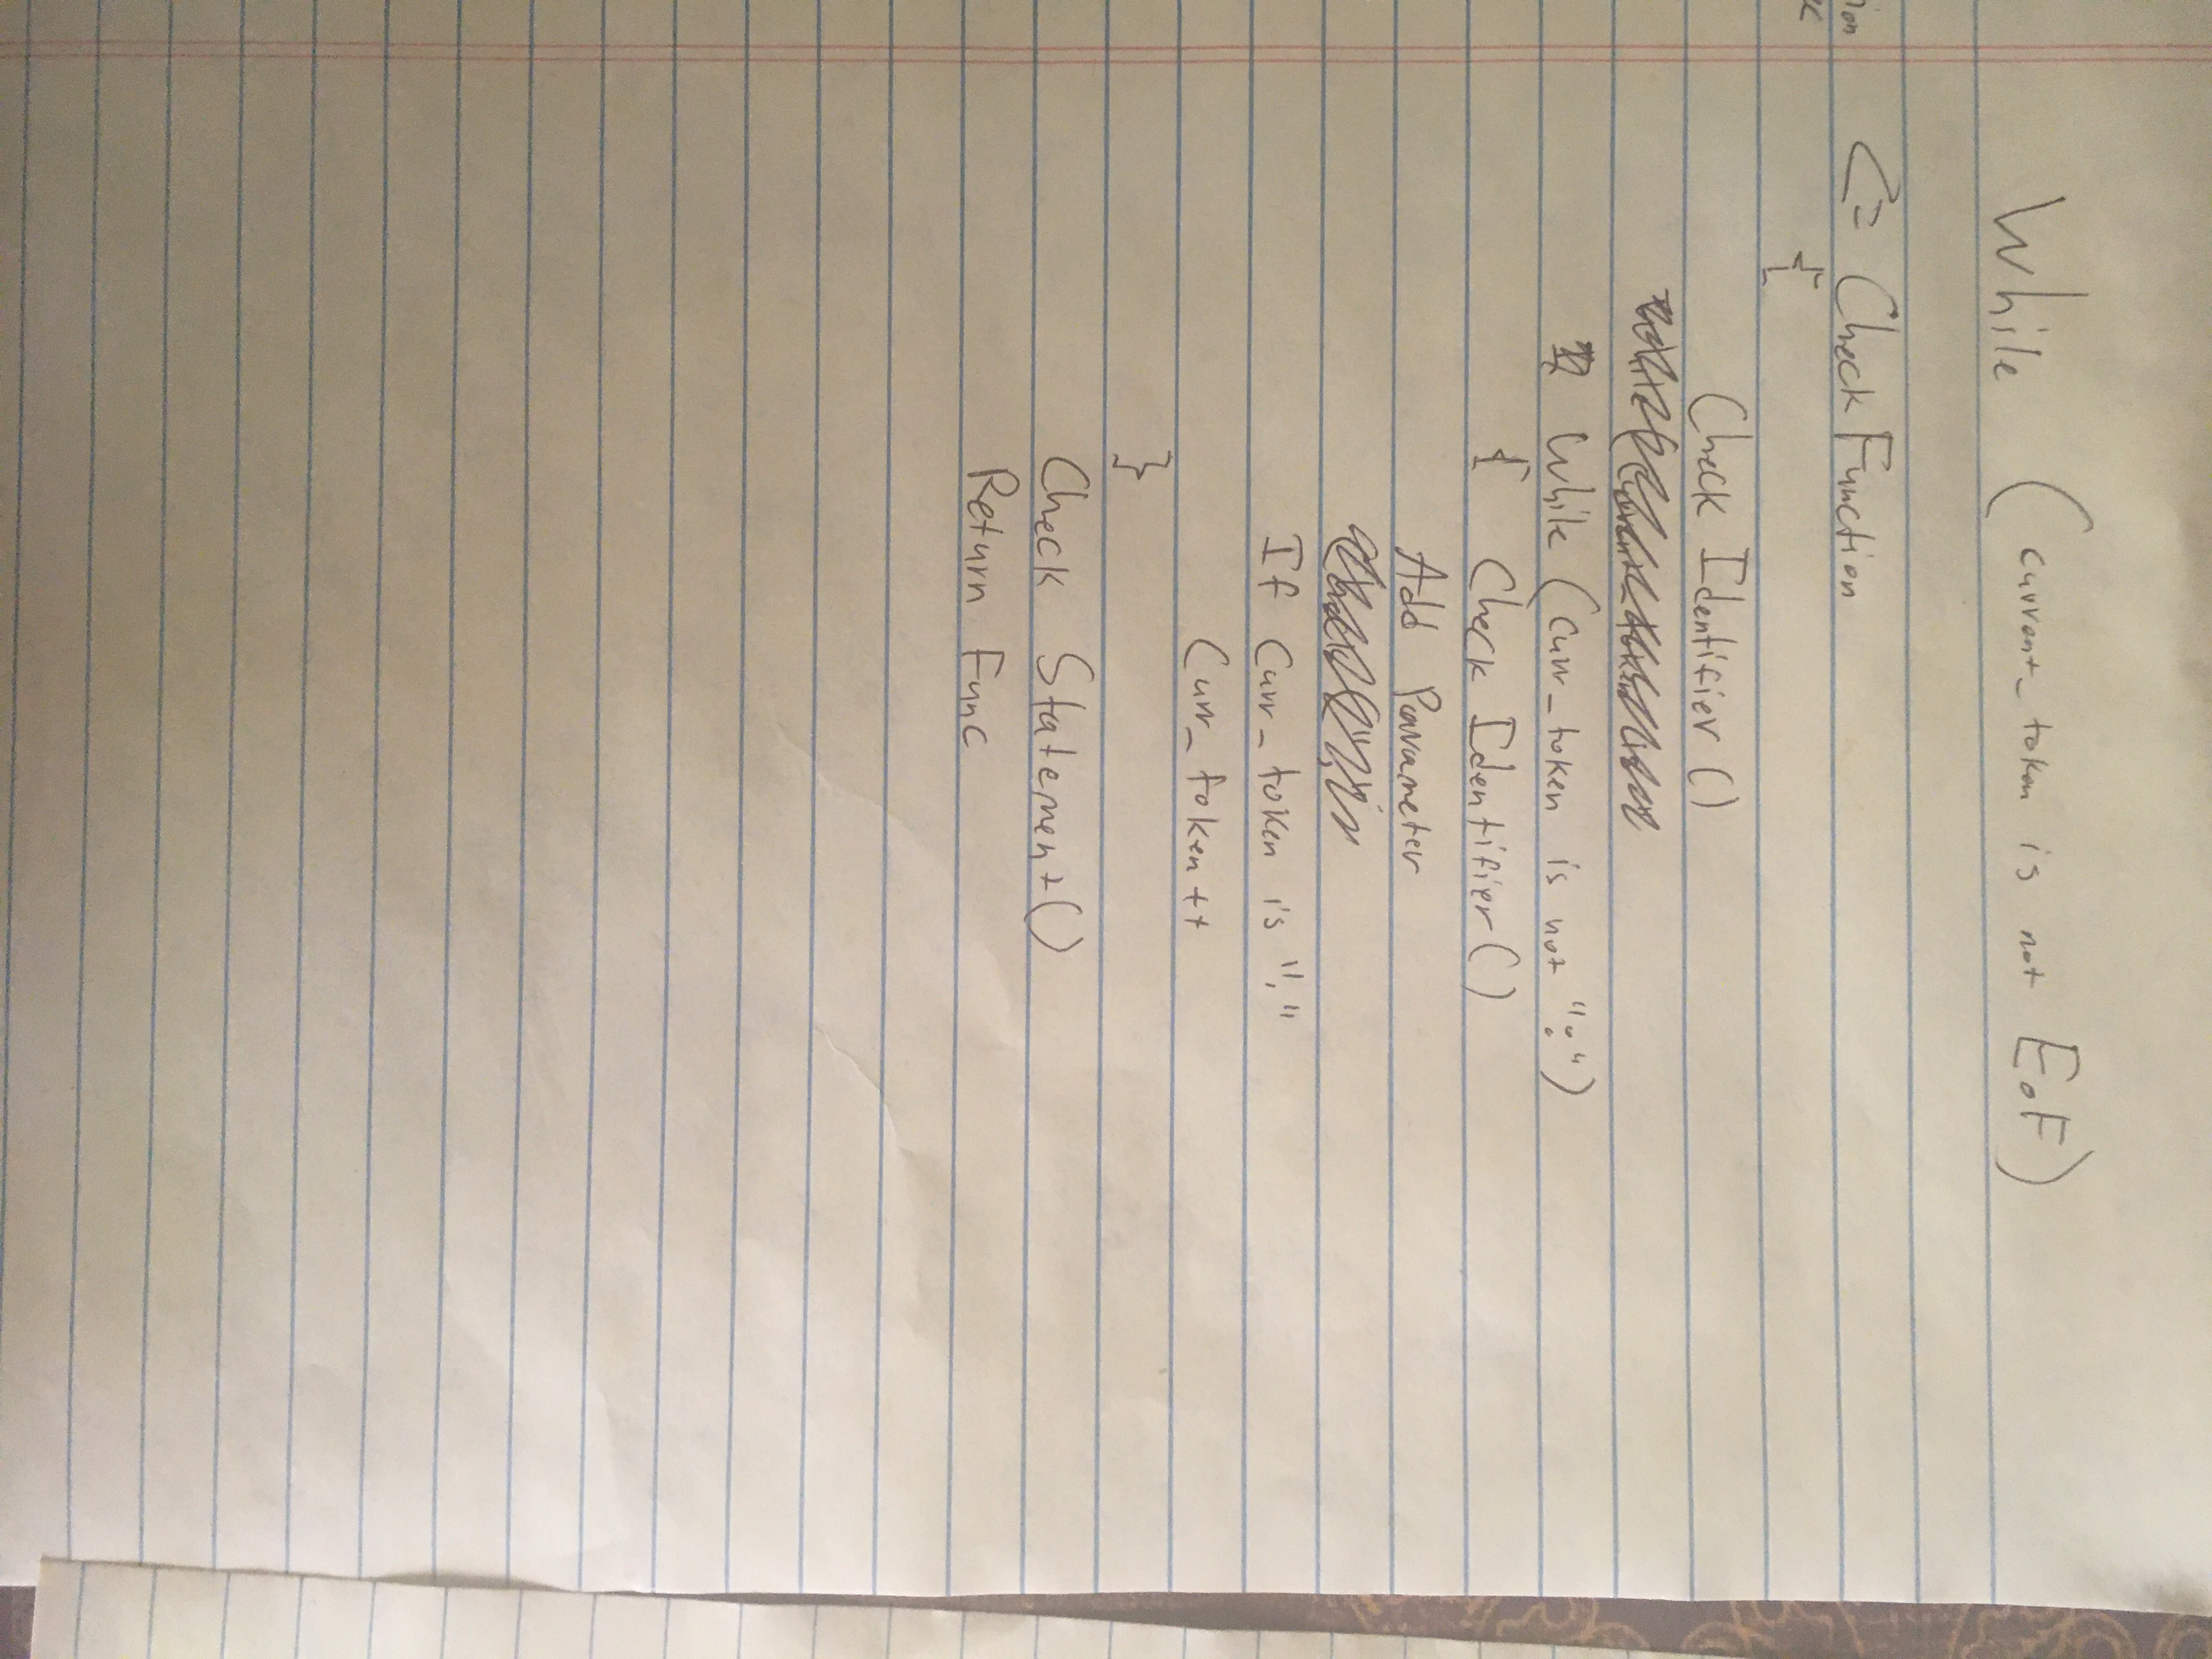 While (current_token is not EoF)
ion C= Check Function
{
Check Identifier()
While (curr_token is not ":")
{ Check Identifier()
Add Parameter
If curr_token is ","
Curr_token++
}
Check Statement()
Return Func